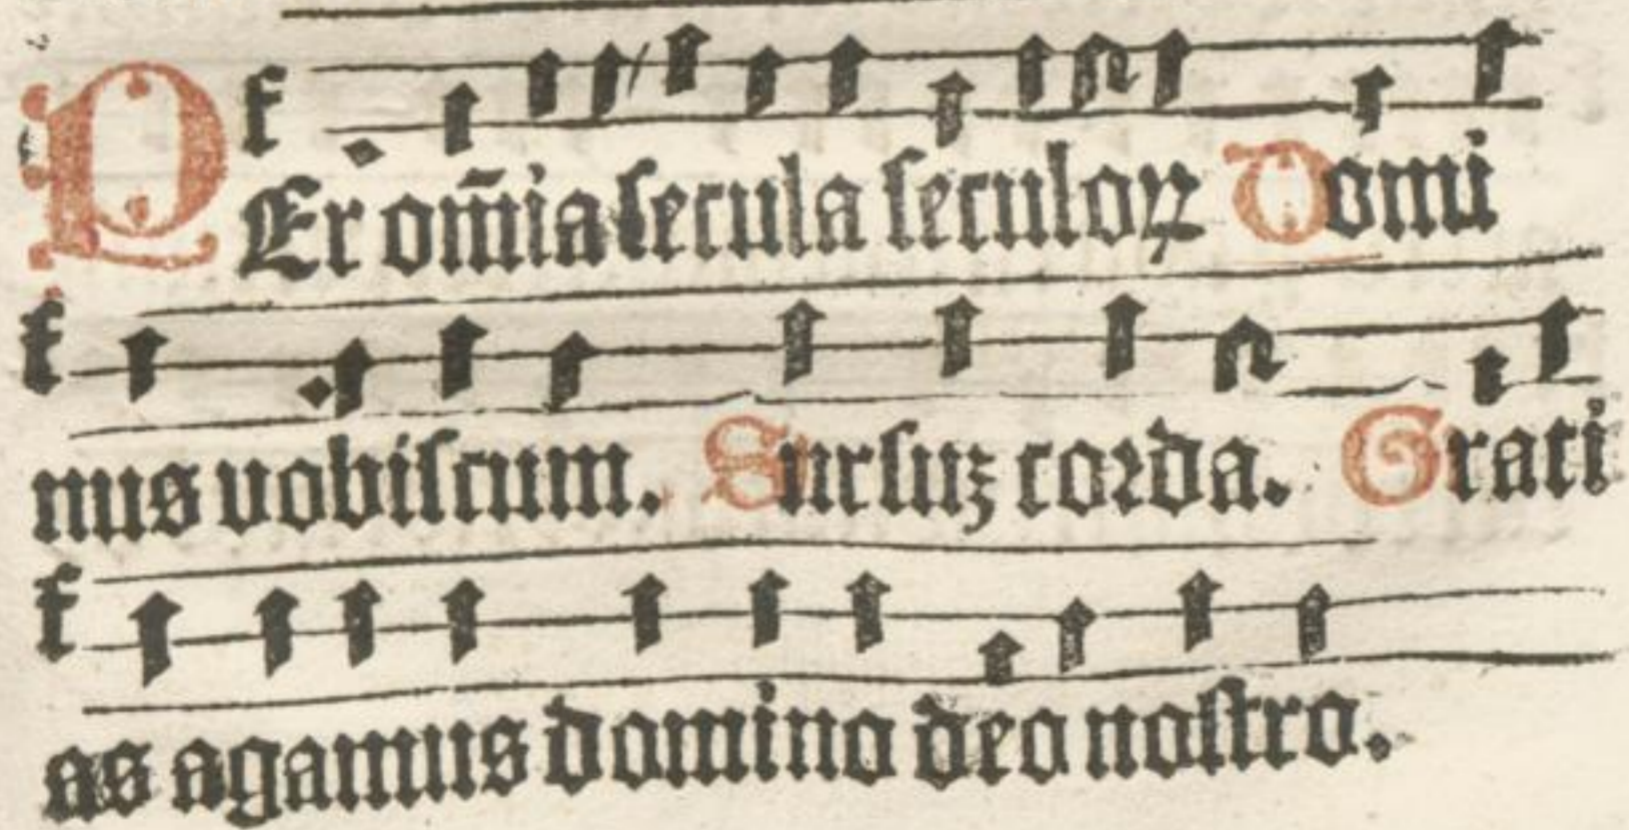 PEr om̄ia ſecula ſeculoꝝ Domi
nus uobiſcum. Surſuꝫ corda. Grati
as agamus domino deo noſtro.